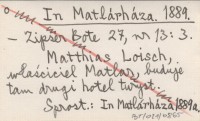 o In Matlárháza. 1889.
- Zipser Bote 27, nr 13: 3.
Matthias Loisch,
właściciel Matlar, buduje
tam drugi hotel turyst.
Sprost.: In Matlárháza 1889a.